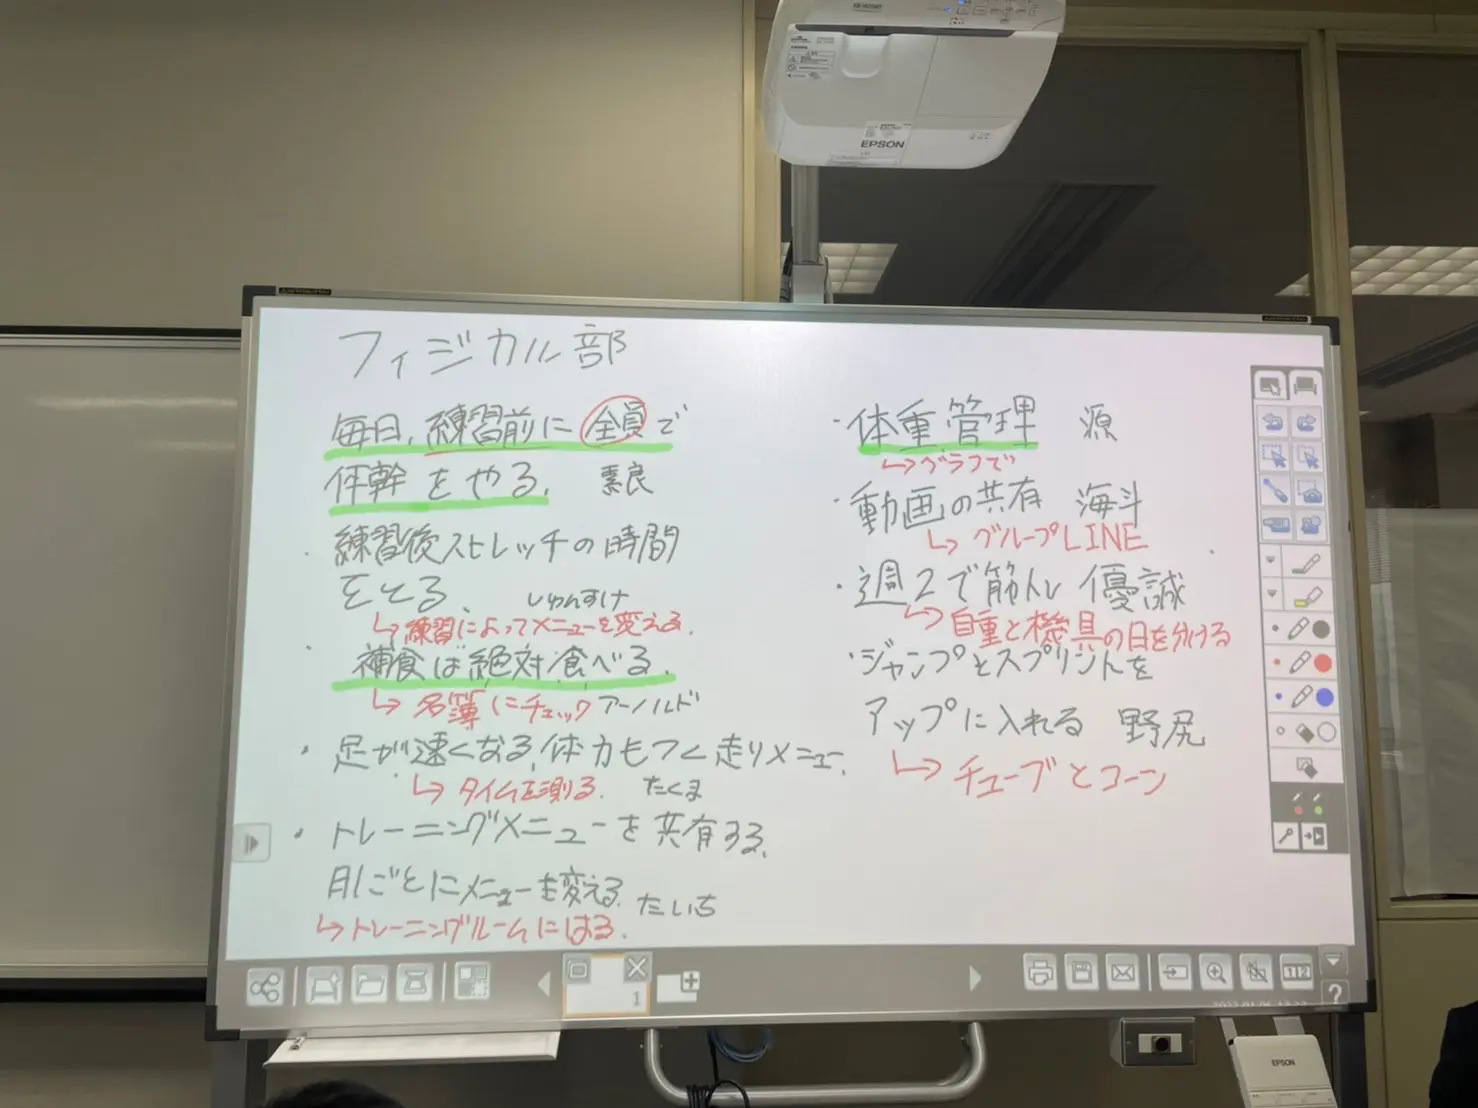 EPSON
フィジカル部
毎日、練習前に全員で
体幹をやる、 素良
・練習後ストレッチの時間
をとる、 しゅんすけ
↳練習によってメニューを変える。
・補食は絶対食べる。
↳名簿にチェック アーノルド
・足が速くなる、体力もつく走りメニュー、
↳タイムを測る。 たくま
・トレーニングメニューを共有する、
月ごとにメニューを変える、 たいち
↳トレーニングルームにはる。
・体重管理 源
↳グラフで
・動画の共有 海斗
↳グループLINE
・週2で筋トレ 優誠
↳自重と機具の日を分ける
・ジャンプとスプリントを
アップに入れる 野尻
↳チューブとコーン
1
1 2
?
EPSON